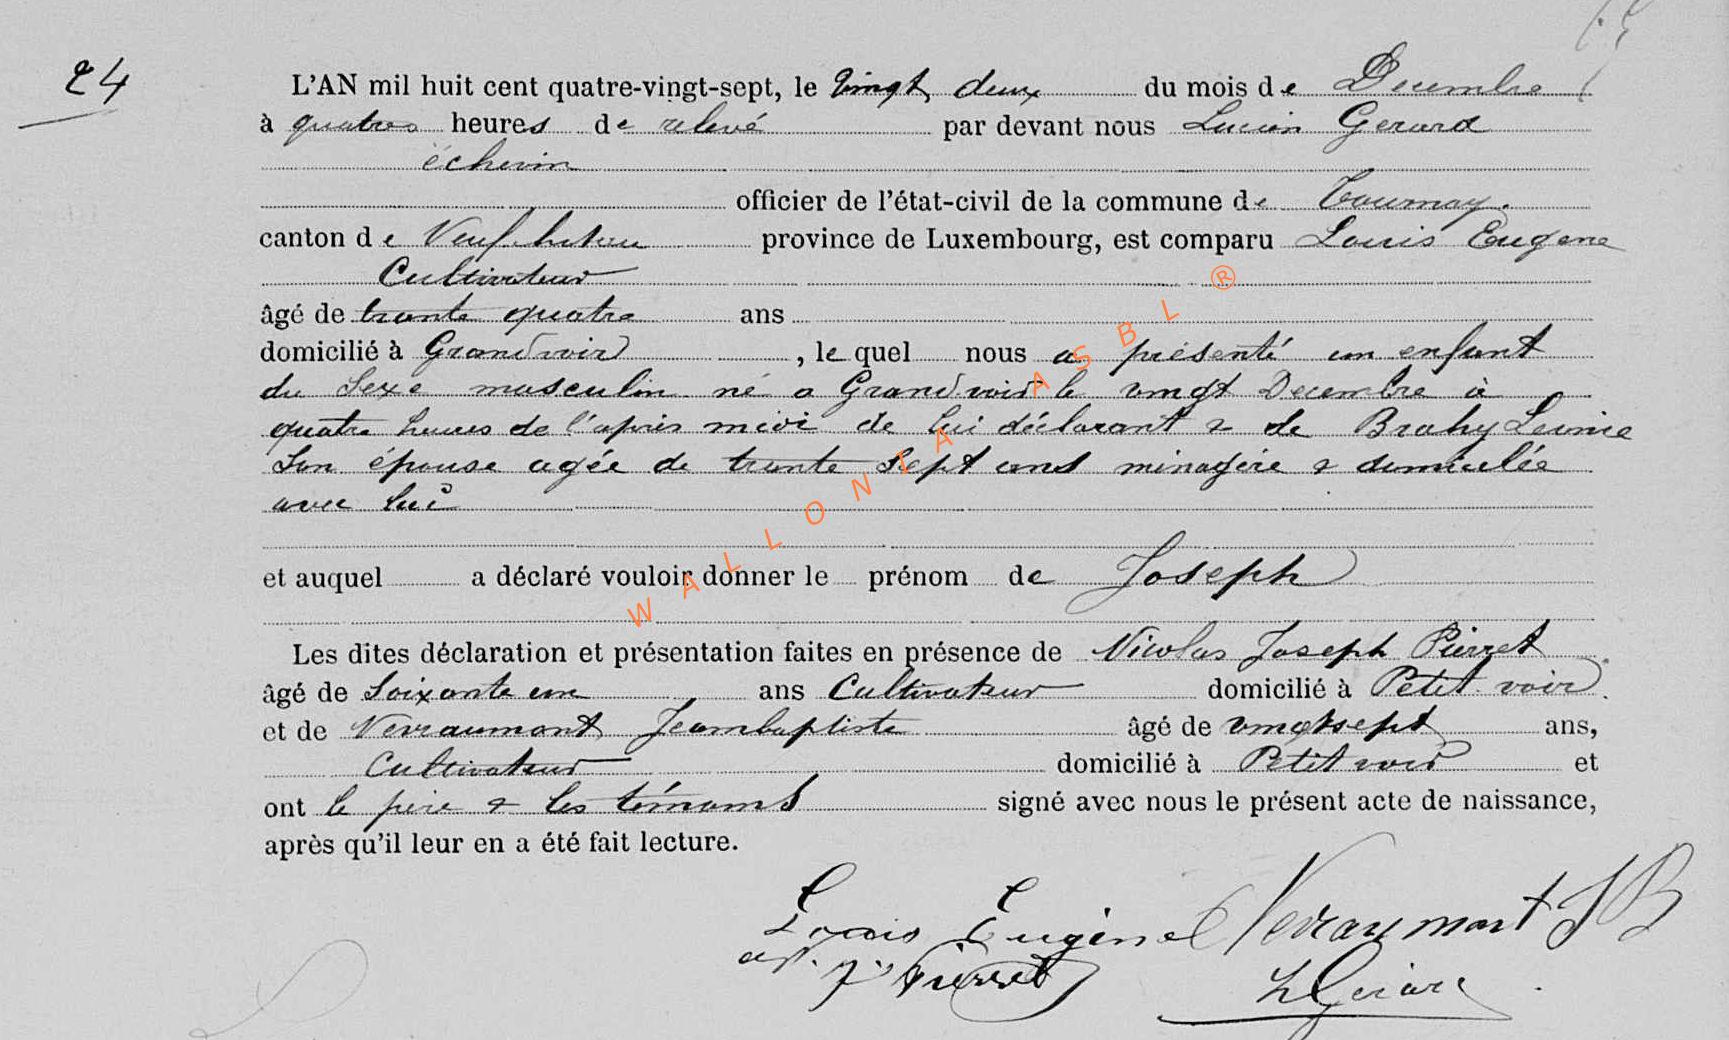 24
L'AN mil huit cent quatre-vingt-sept, le vingt deux du mois de Decembre
à quatres heures de relevé par devant nous Lucien Gerard
échevin
officier de l'état-civil de la commune de Tournay.
canton de Neufchateau province de Luxembourg, est comparu Louis Eugene
Cultivateur
âgé de trente quatre ans
domicilié à Grandvoir, le quel nous a présenté un enfant
du Sexe masculin né a Grandvoir le vingt Decembre à
quatre heures de l'après midi de lui déclarant & de Brahy Leonie
Son épouse agée de trente Sept ans ménagère & domicilée
avec lui
et auquel a déclaré vouloir donner le prénom de Joseph
Les dites déclaration et présentation faites en présence de Nicolas Joseph Pierret
âgé de Soixante un ans Cultivateur domicilié à Petit voir.
et de Verraumont Jeanbaptiste âgé de vingtsept ans,
Cultivateur domicilié à Petit voir et
ont le père & les témoins signé avec nous le présent acte de naissance,
après qu'il leur en a été fait lecture.
Louis Eugène Verraumont JB
J. Pierret L Gerard
WALLONIA ASBL ®